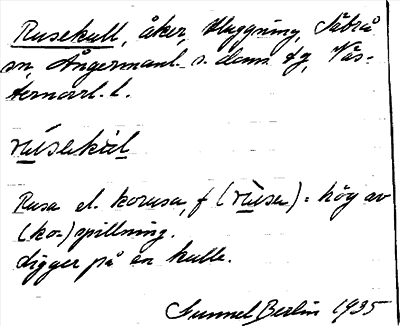 Rusekull, åker, Kluggning, Säbrå
sn, Ångermanl. s. dom. sg, Väs-
ternorrl. l.
rùsekùl
Rusa el. korusa, f (rùsa) = hög av
(ko-)spillning.
Ligger på en kulle.
Gunnel Berlin 1935